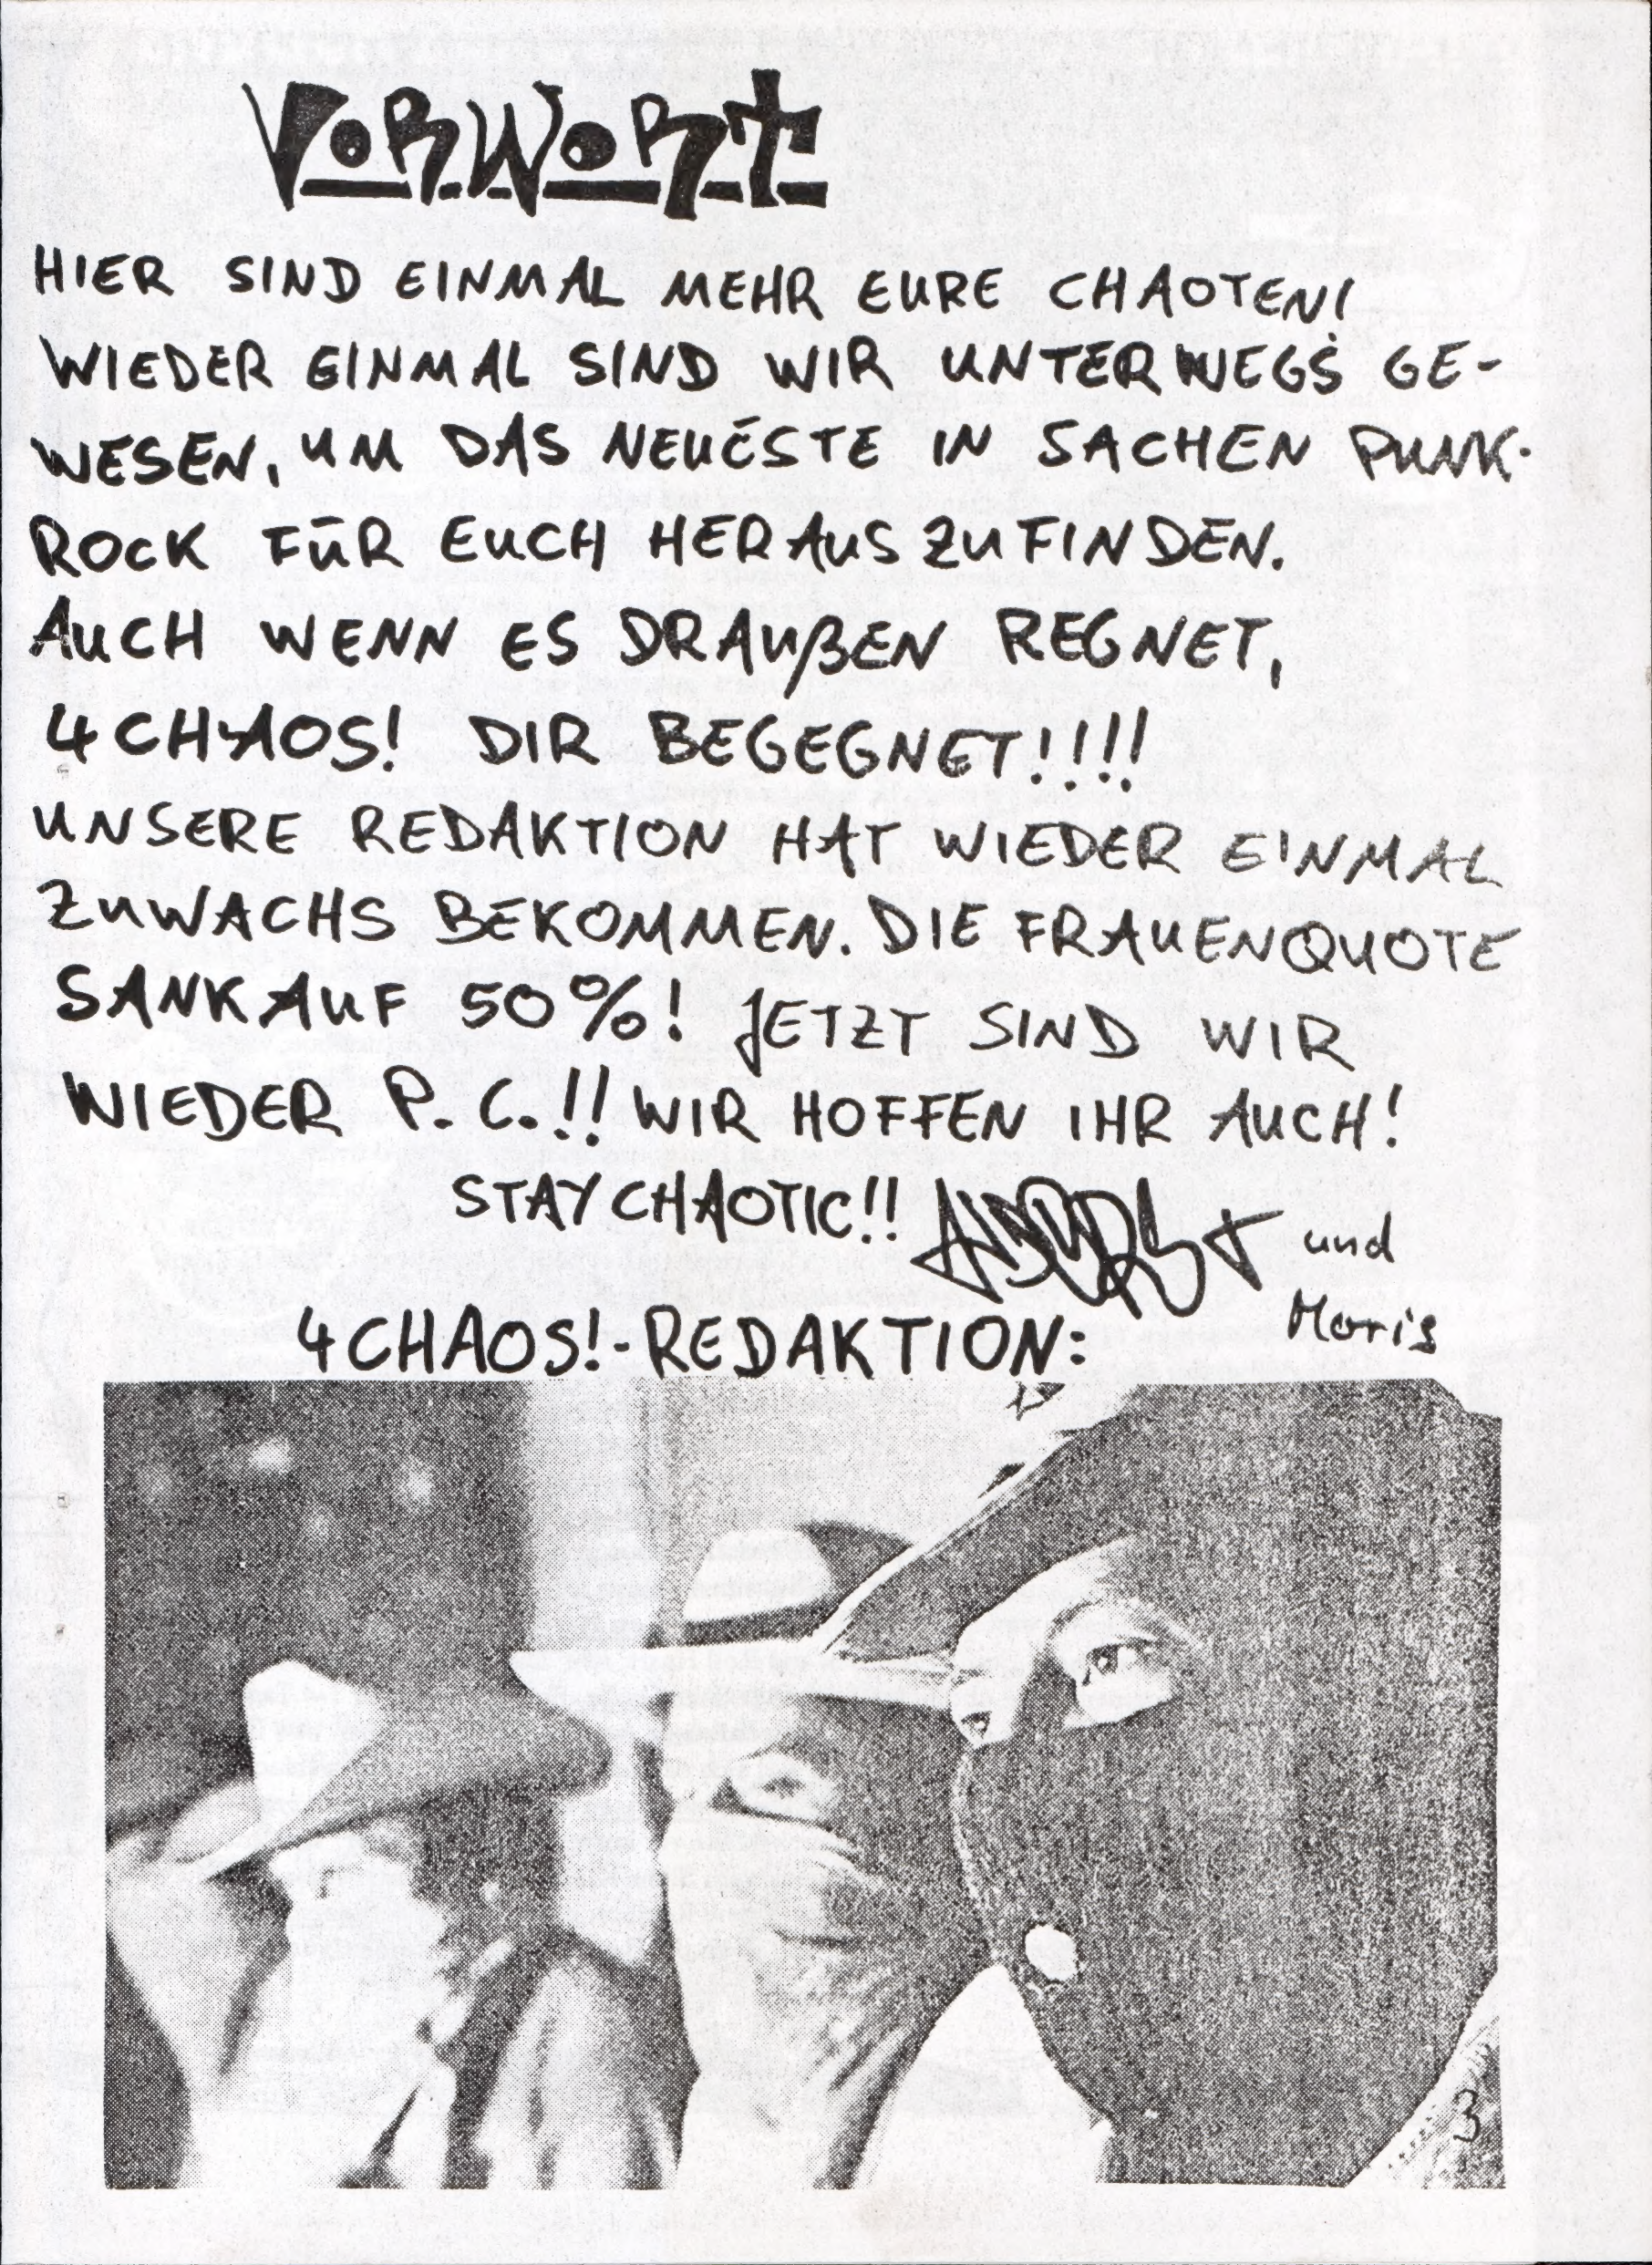 VORWORT
HIER SIND EINMAL MEHR EURE CHAOTEN!
WIEDER EINMAL SIND WIR UNTERWEGS GE-
WESEN, UM DAS NEUESTE IN SACHEN PUNK-
ROCK FÜR EUCH HERAUSZUFINDEN.
AUCH WENN ES DRAUßEN REGNET,
4CHAOS! DIR BEGEGNET!!!!
UNSERE REDAKTION HAT WIEDER EINMAL
ZUWACHS BEKOMMEN. DIE FRAUENQUOTE
SANK AUF 50%! JETZT SIND WIR
WIEDER P.C.!! WIR HOFFEN IHR AUCH!
STAY CHAOTIC!! und
Moris
4CHAOS!-REDAKTION:
3